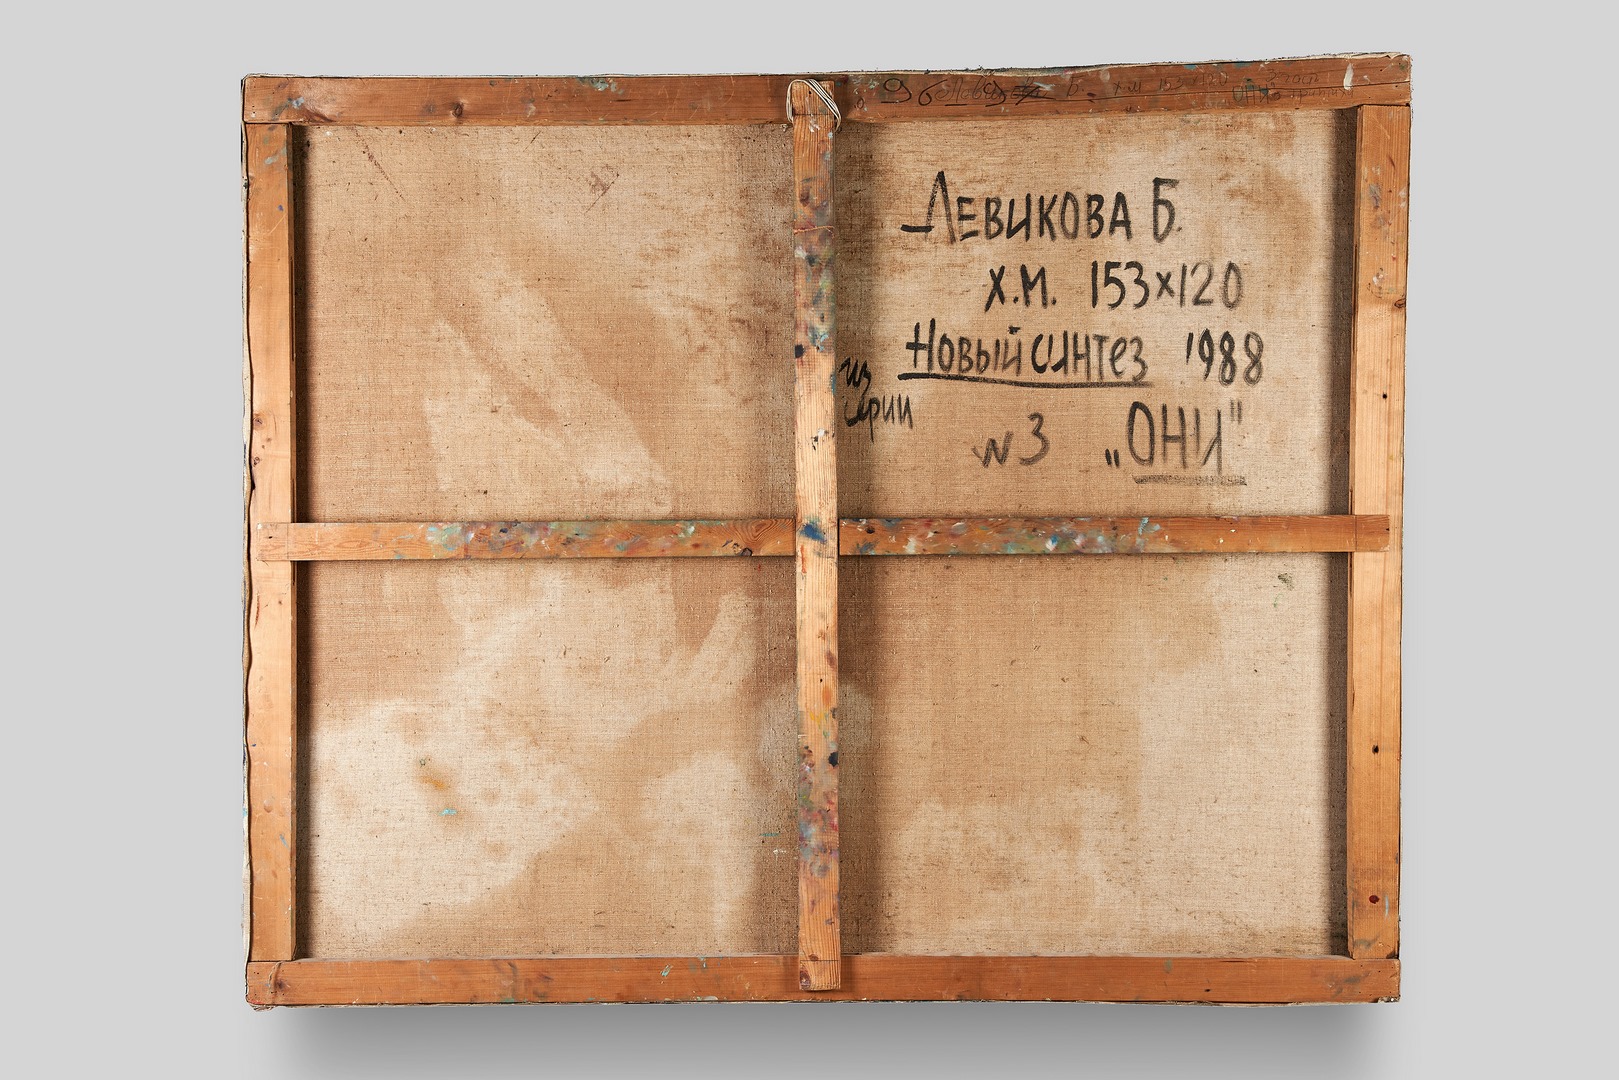 Б. х.м 153х120
ЛЕВИКОВА Б.
Х.М. 153х120
Новый синтез 1988
из серии
N 3 „ОНИ"